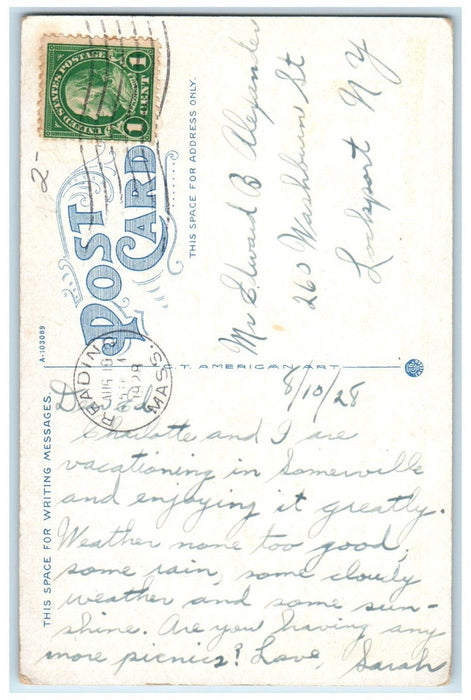 UNITED STATES POSTAGE
1 CENT 1
2-
POST
CARD
THIS SPACE FOR ADDRESS ONLY.
Mr Edward B Alexander
260 Washburn St
Lockport NY
READING
AUG 10
1928
MASS
A-103089
C.T. AMERICAN ART
THIS SPACE FOR WRITING MESSAGES.
8/10/28
Dear Ed,
Charlotte and I are
vacationing in Somerville
and enjoying it greatly.
Weather none too good,
some rain, some cloudy
weather and some sun-
shine. Are you having any
more picnics? Love, Sarah